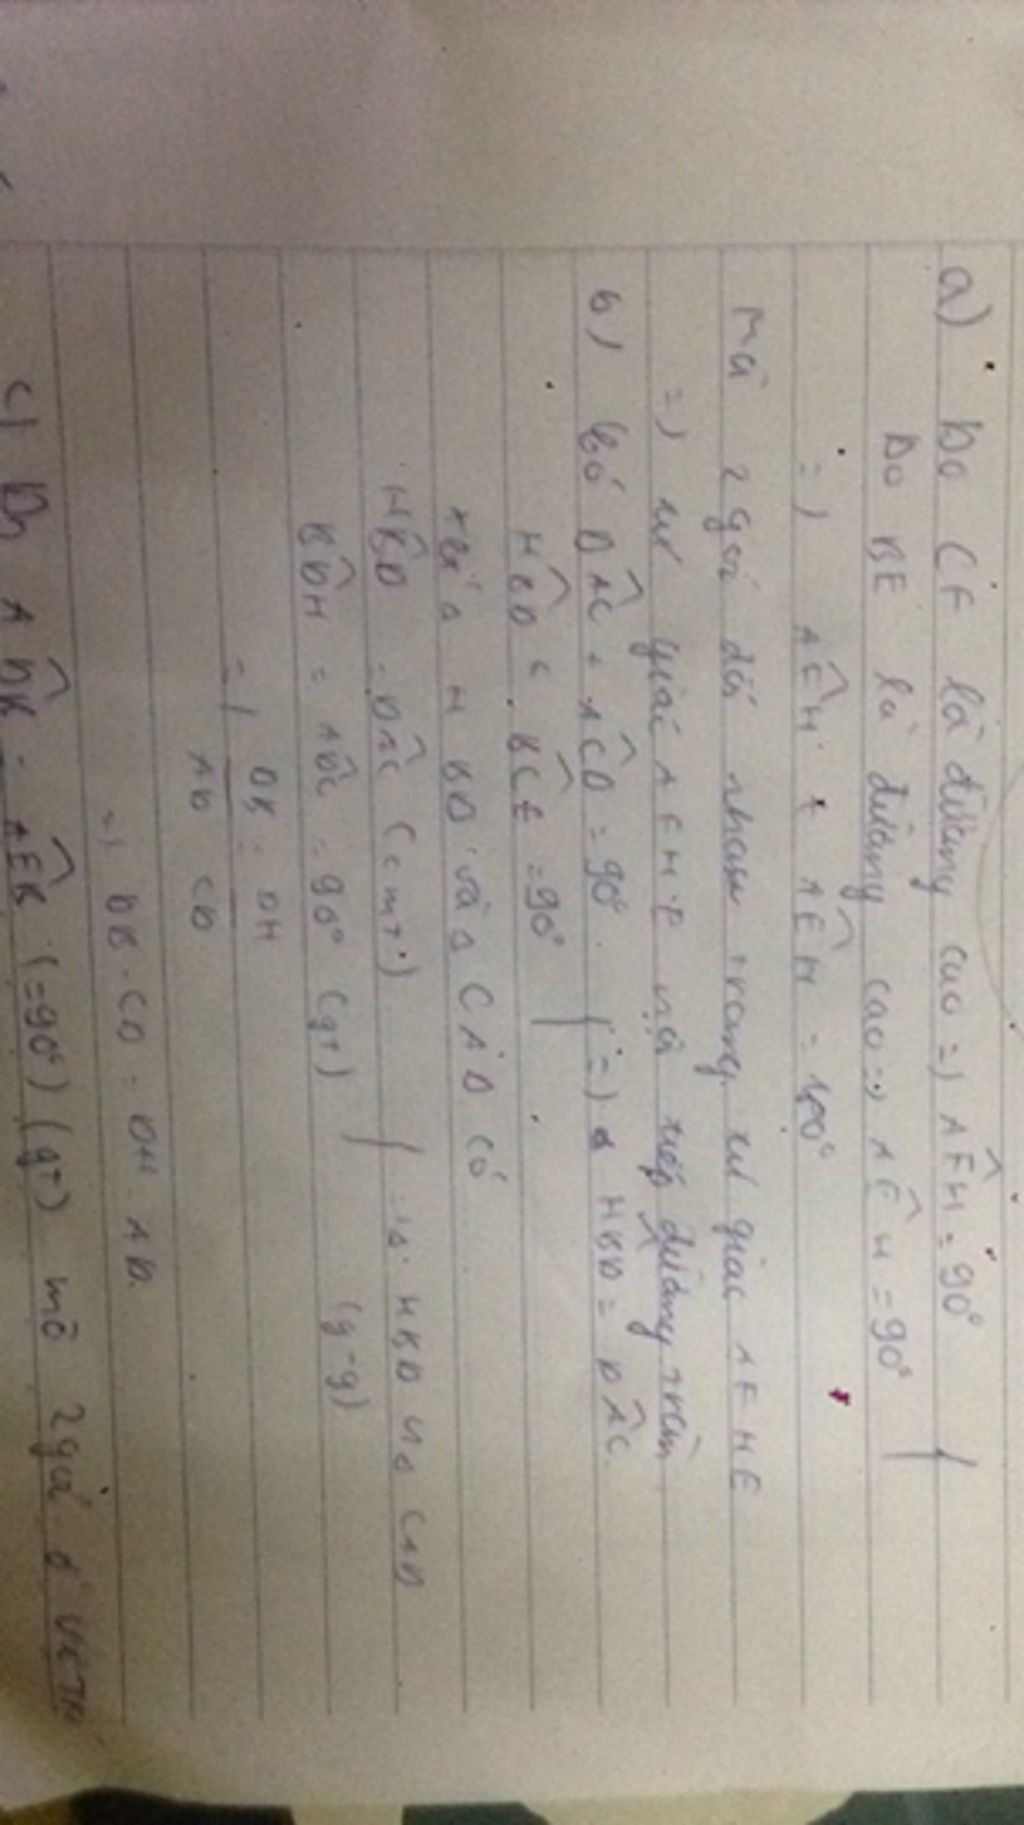 a) Do CF là đường cao => AFH = 90°
Do BE là đường cao => AEH = 90°
=> AFH + AEH = 180°
Mà 2 góc đối nhau trong tứ giác AFHE
=> tứ giác AFHE nội tiếp đường tròn
b) Có DAC + ACD = 90° => HBD = DAC
HBD + BCE = 90°
xét Δ HBD và Δ CAD có
HBD = DAC (cmt) Δ HBD CAD
BDH = ADC = 90° (gt) (g-g)
=> DB/AD = DH/CD
=> DB.CD = DH.AD
c) ADB = AEB (=90°) (gt) mà 2 góc ở